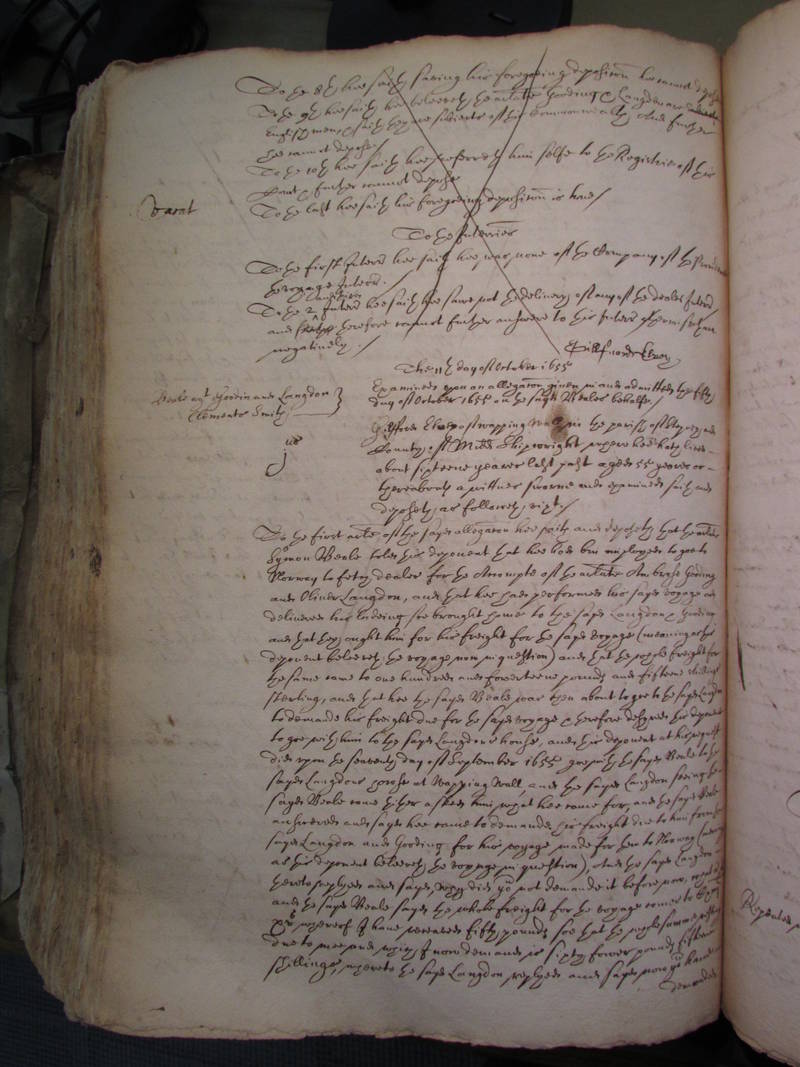 To the 8th hee saith saving his foregoeing deposition hee cannot depose
To the 9th hee saith hee beleeveth the arlate Gooding and Langdon are
Englishmen, and saith they are subiects of this Commonwealth, And further
hee cannot depose/
To the 10th hee saith hee referreth him selfe to the Registrie of this
Court, and further cannot depose
To the last hee saith his foregoeing deposition is true/
To the Interries
To the first Interr hee saith hee was none of the Company of the
the voyage Interr.
To the 2 Interr hee saith hee sawe not the delivery of any of the deales Interr
and therefore cannot further answere to this Interr otherwise than
negatively ./
The 11th day of October 1655
Beale agt Goodin and Langdon
Clements Smith
Examined upon an allegation given in and admitted the fifth
day of October 1655 on the sayd Beales behalfe./
jus
of wapping Wall in the parish of
County of Middx Shipwright where hee hath lived
about sixteene yeares last past aged 55 yeares or
thereabouts a wittnes sworne and examined saith and
deposeth as followeth, vizt/
To the first arle of the sayd allegation hee saith and deposeth that the arlate
Symon Beale tolde this deponent that hee had bin employed to goe to
Norway to fetch deales for the Accompte of the arlate Ambrose Gooding
and Oliver Langdon, and that hee had performed his sayd voyage and
delivered his ladeing soe brought home to the sayd Langdon and Gooding
and that they ought him for his freight for the sayd voyage (meaning as this
deponent beleeveth the voyage now in question) and that the whole freight for
the same came to one hundred and fowerteene pounds and fifteene shillings
sterling, and that hee the sayd Beale was then about to goe to the sayd Langdon
to demande his freight due for the sayd voyage and therefore desyred this deponent
to goe with him to the sayd Langdons house, and this deponent at his request
did upon the seaventh day of September 1655 goe with the sayd Beale to the
sayd Langdons howse at Wapping Wall, and the sayd Langdon seeing the
sayd Beale come thither asked him what hee came for, and the sayd Beale
answered and sayd hee came to demande his freight due to him from the
sayd Langdon and Gooding for his voyage made for them to Norway (meaning
as this deponent beleeveth the voyage in question), And the sayd Langdon
thereto replyed and sayd, Why did you not demande it before now,
and the sayd Beale sayd the whole freight for the voyage comes to
whereof I have received fifty pounds soe that the
due to mee and which I now demande is sixty fower pounds fifteene
shillings, whereto the sayd Langdon replyed and sayd now you have
demanded